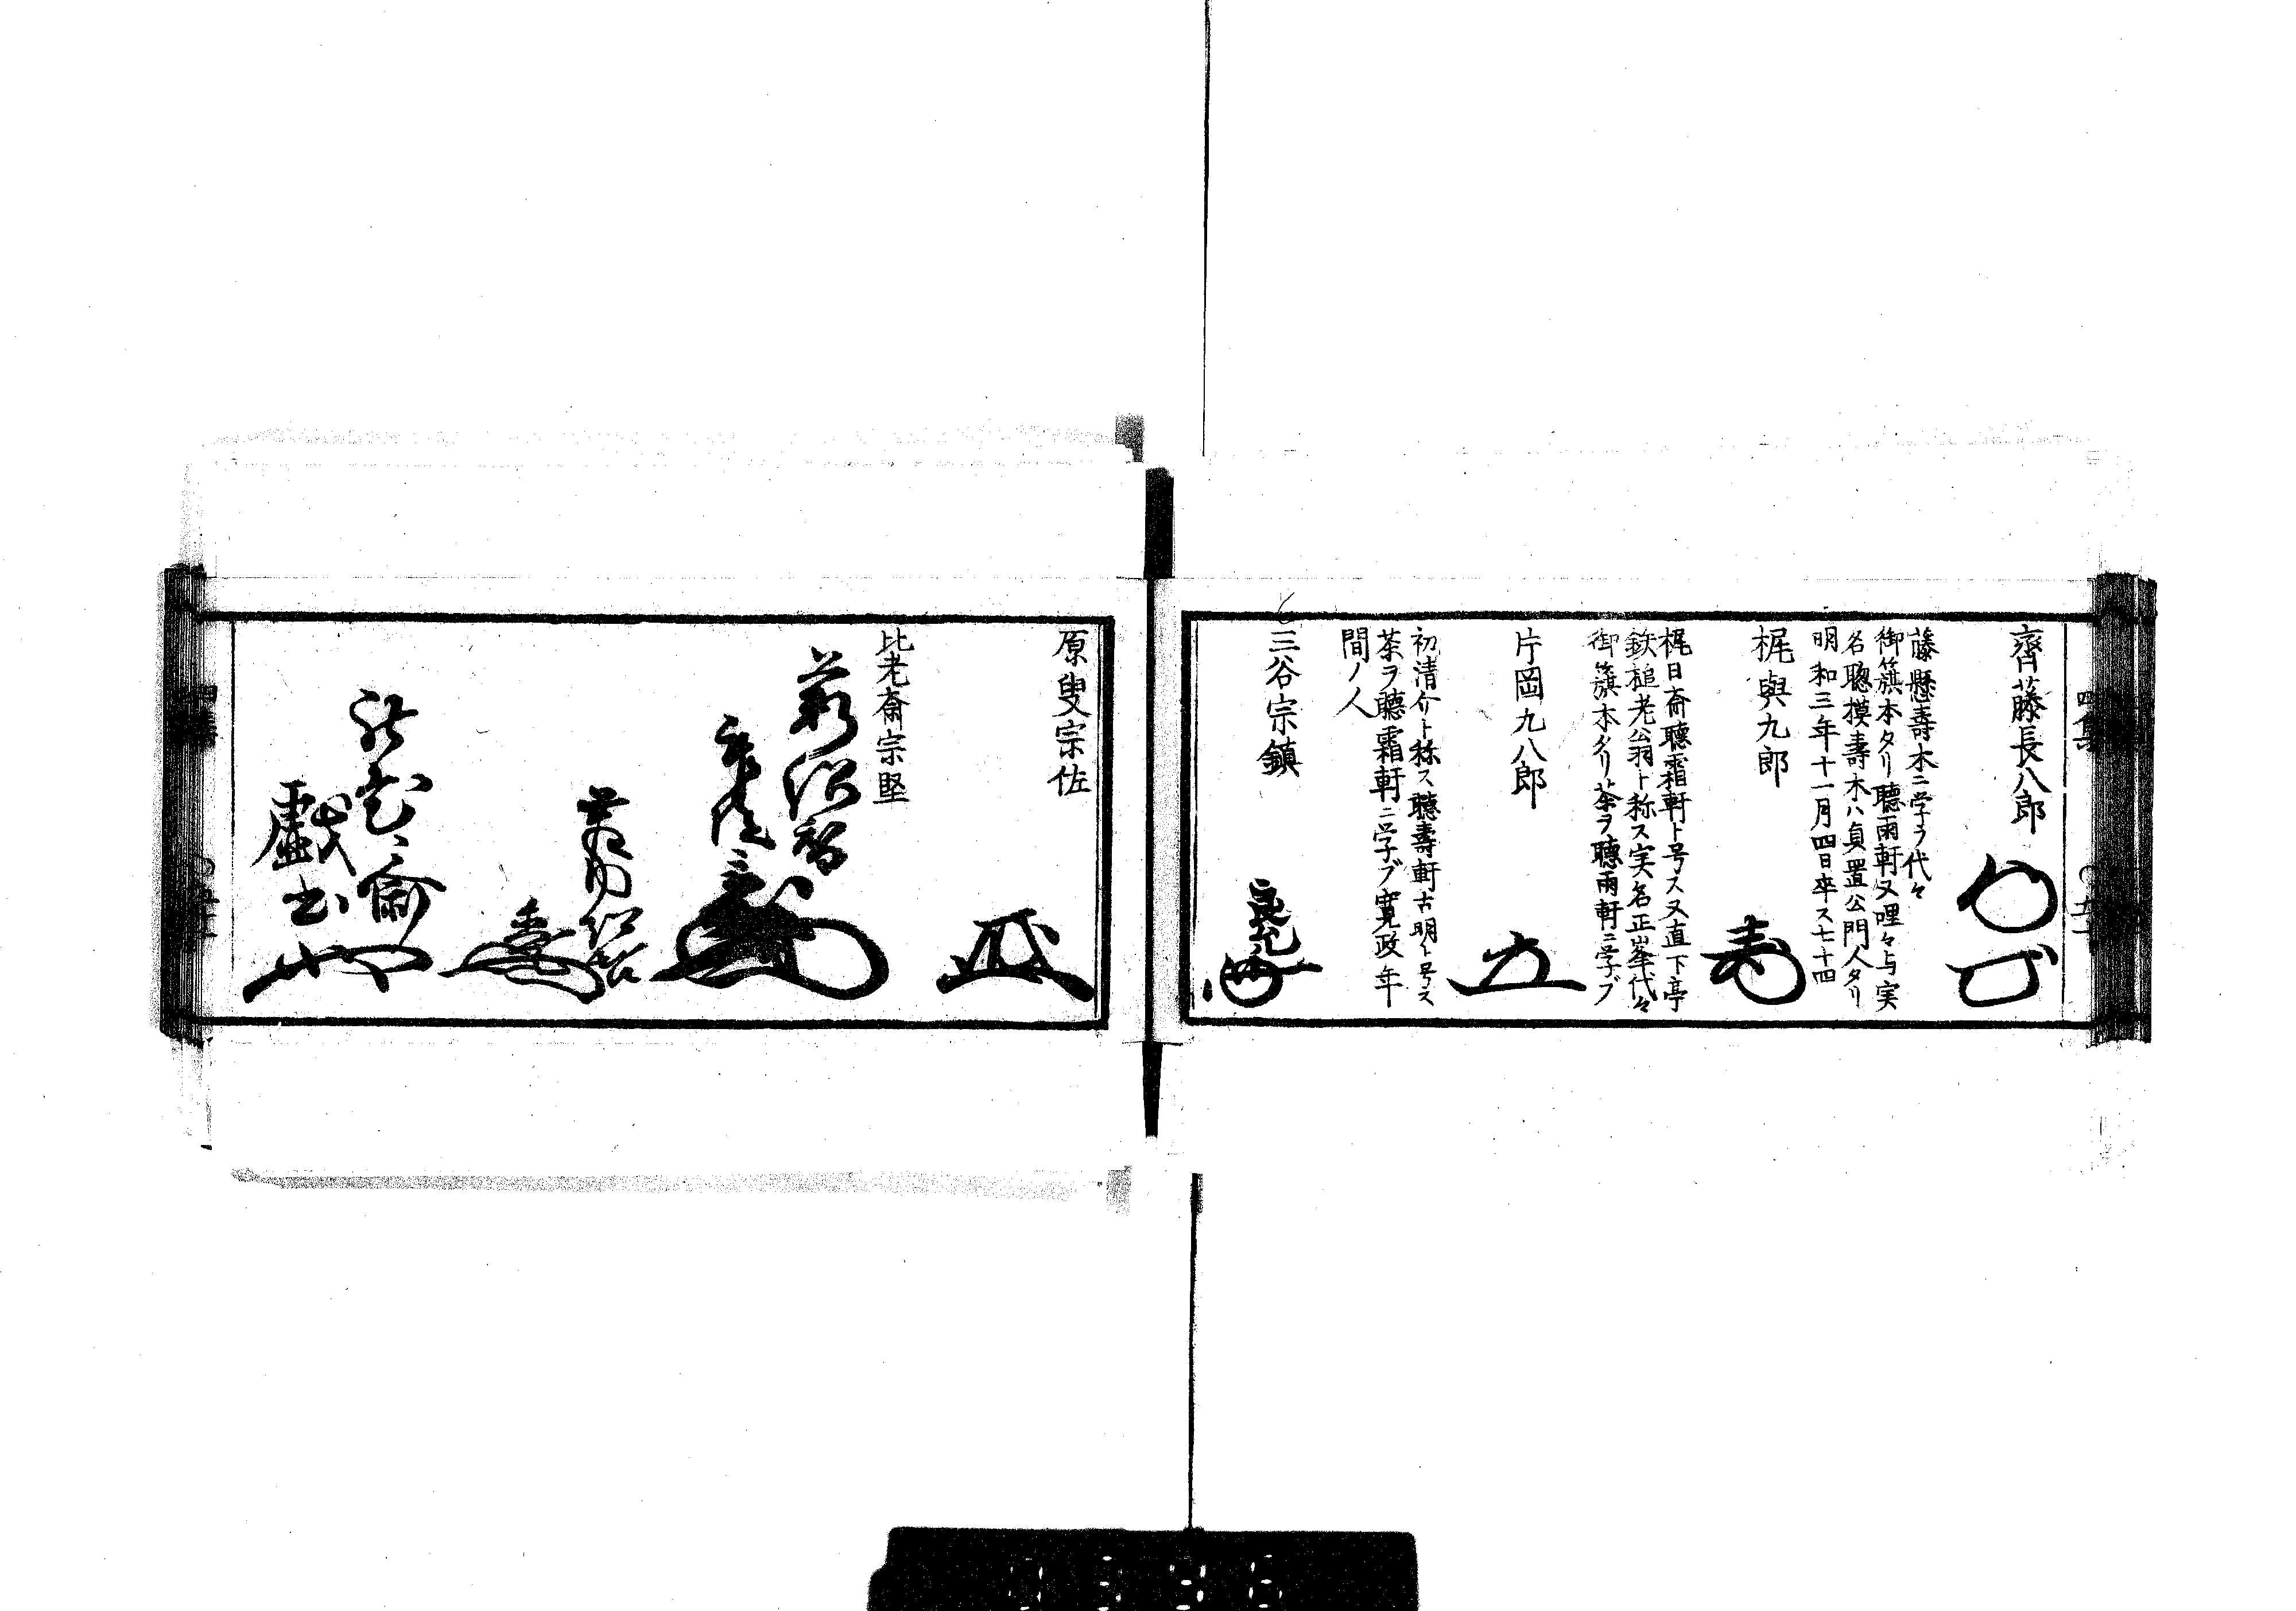 四集
齊藤長八郎
藤懸壽木ニ学ヲ代々
御籏本タリ聽雨軒又哩々与実
名聰摸壽木ハ貞置公門人タリ
明和三年十一月四日卒ス七十四
梶與九郎
梶日斎聽霜軒ト号ス又直下亭
鉄槌老公羽ト称ス実名正峯代々
御籏本タリ茶ヲ聽雨軒ニ学ブ
片岡九八郎
初清介ト称ス聽壽軒古明ト号ス
茶ヲ聽霜軒ニ学ブ寛政年
間ノ人
三谷宗鎮
原叟宗佐
比老斎宗堅
戯書